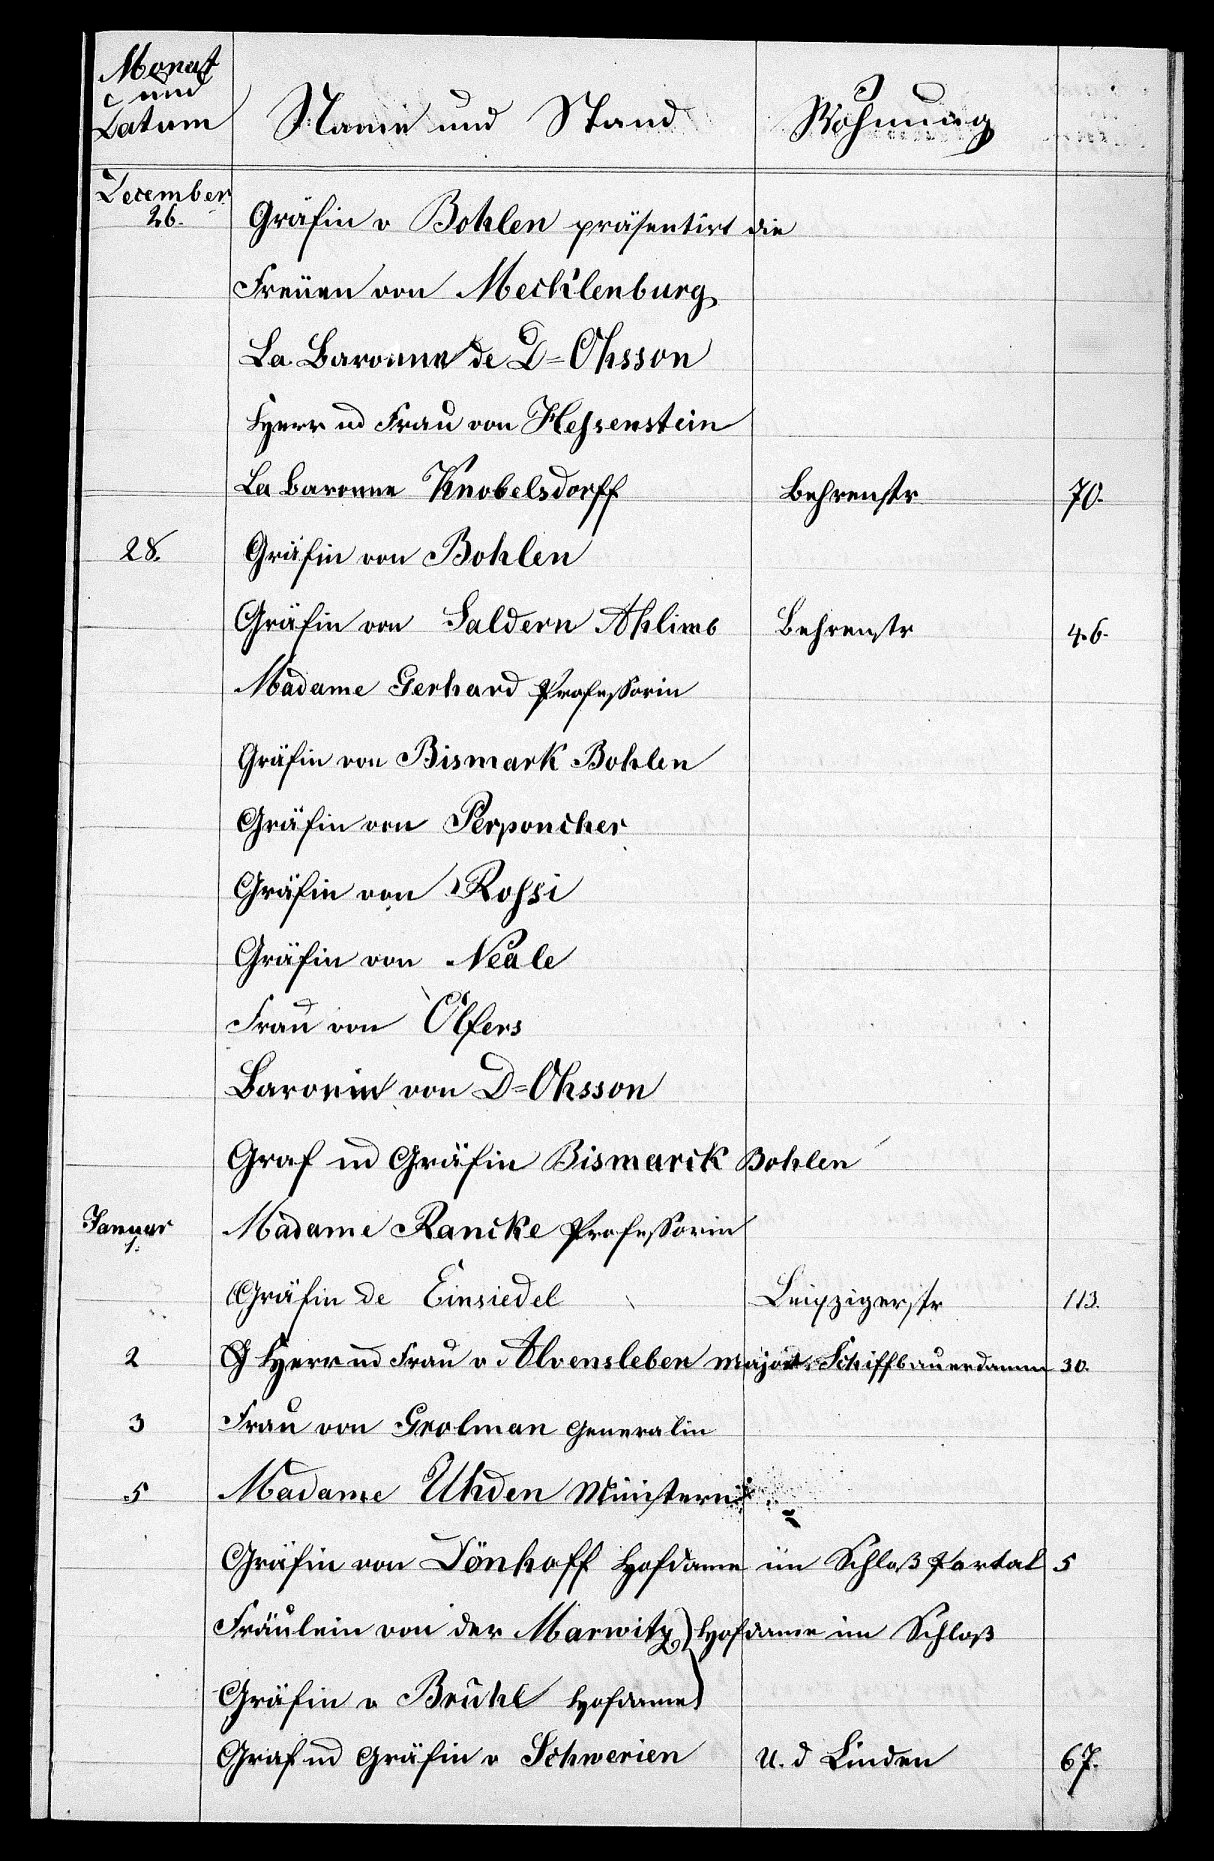 Monat
und
Datum Name und Stand Wohnung
December
26. Gräfin v Bohlen präsentirt die
Freüen von Mecklenburg
La Baronne de D=Ohsson
Herr ud Frau von Heßenstein
La Baronne Knobelsdorff Behrenstr 70.
28. Gräfin von Bohlen
Gräfin von Saldern Ahlimb Behrenstr 46.
Madame Gerhard Professorin
Gräfin von Bismark Bohlen
Gräfin von Perponcher
Gräfin von Roßi
Gräfin von Neale
Frau von Olfers
Baronin von D=Ohsson
Graf ud Gräfin Bismarck Bohlen
Januar
1. Madame Rancke Professorin
Gräfin de Einsiedel Leipzigerstr 113.
2 Herr ud Frau v Alvensleben Major Schiffbauerdamm 30.
3 Frau von Grolman Generalin
5 Madame Uhden Ministerin
Gräfin von Dönhoff Hofdame im Schloß Portal 5
Fräulein von der Marwitz) Hofdame im Schloß
Gräfin v Brühl Hofdame)
Graf ud Gräfin v Schwerien U. d Linden 67.